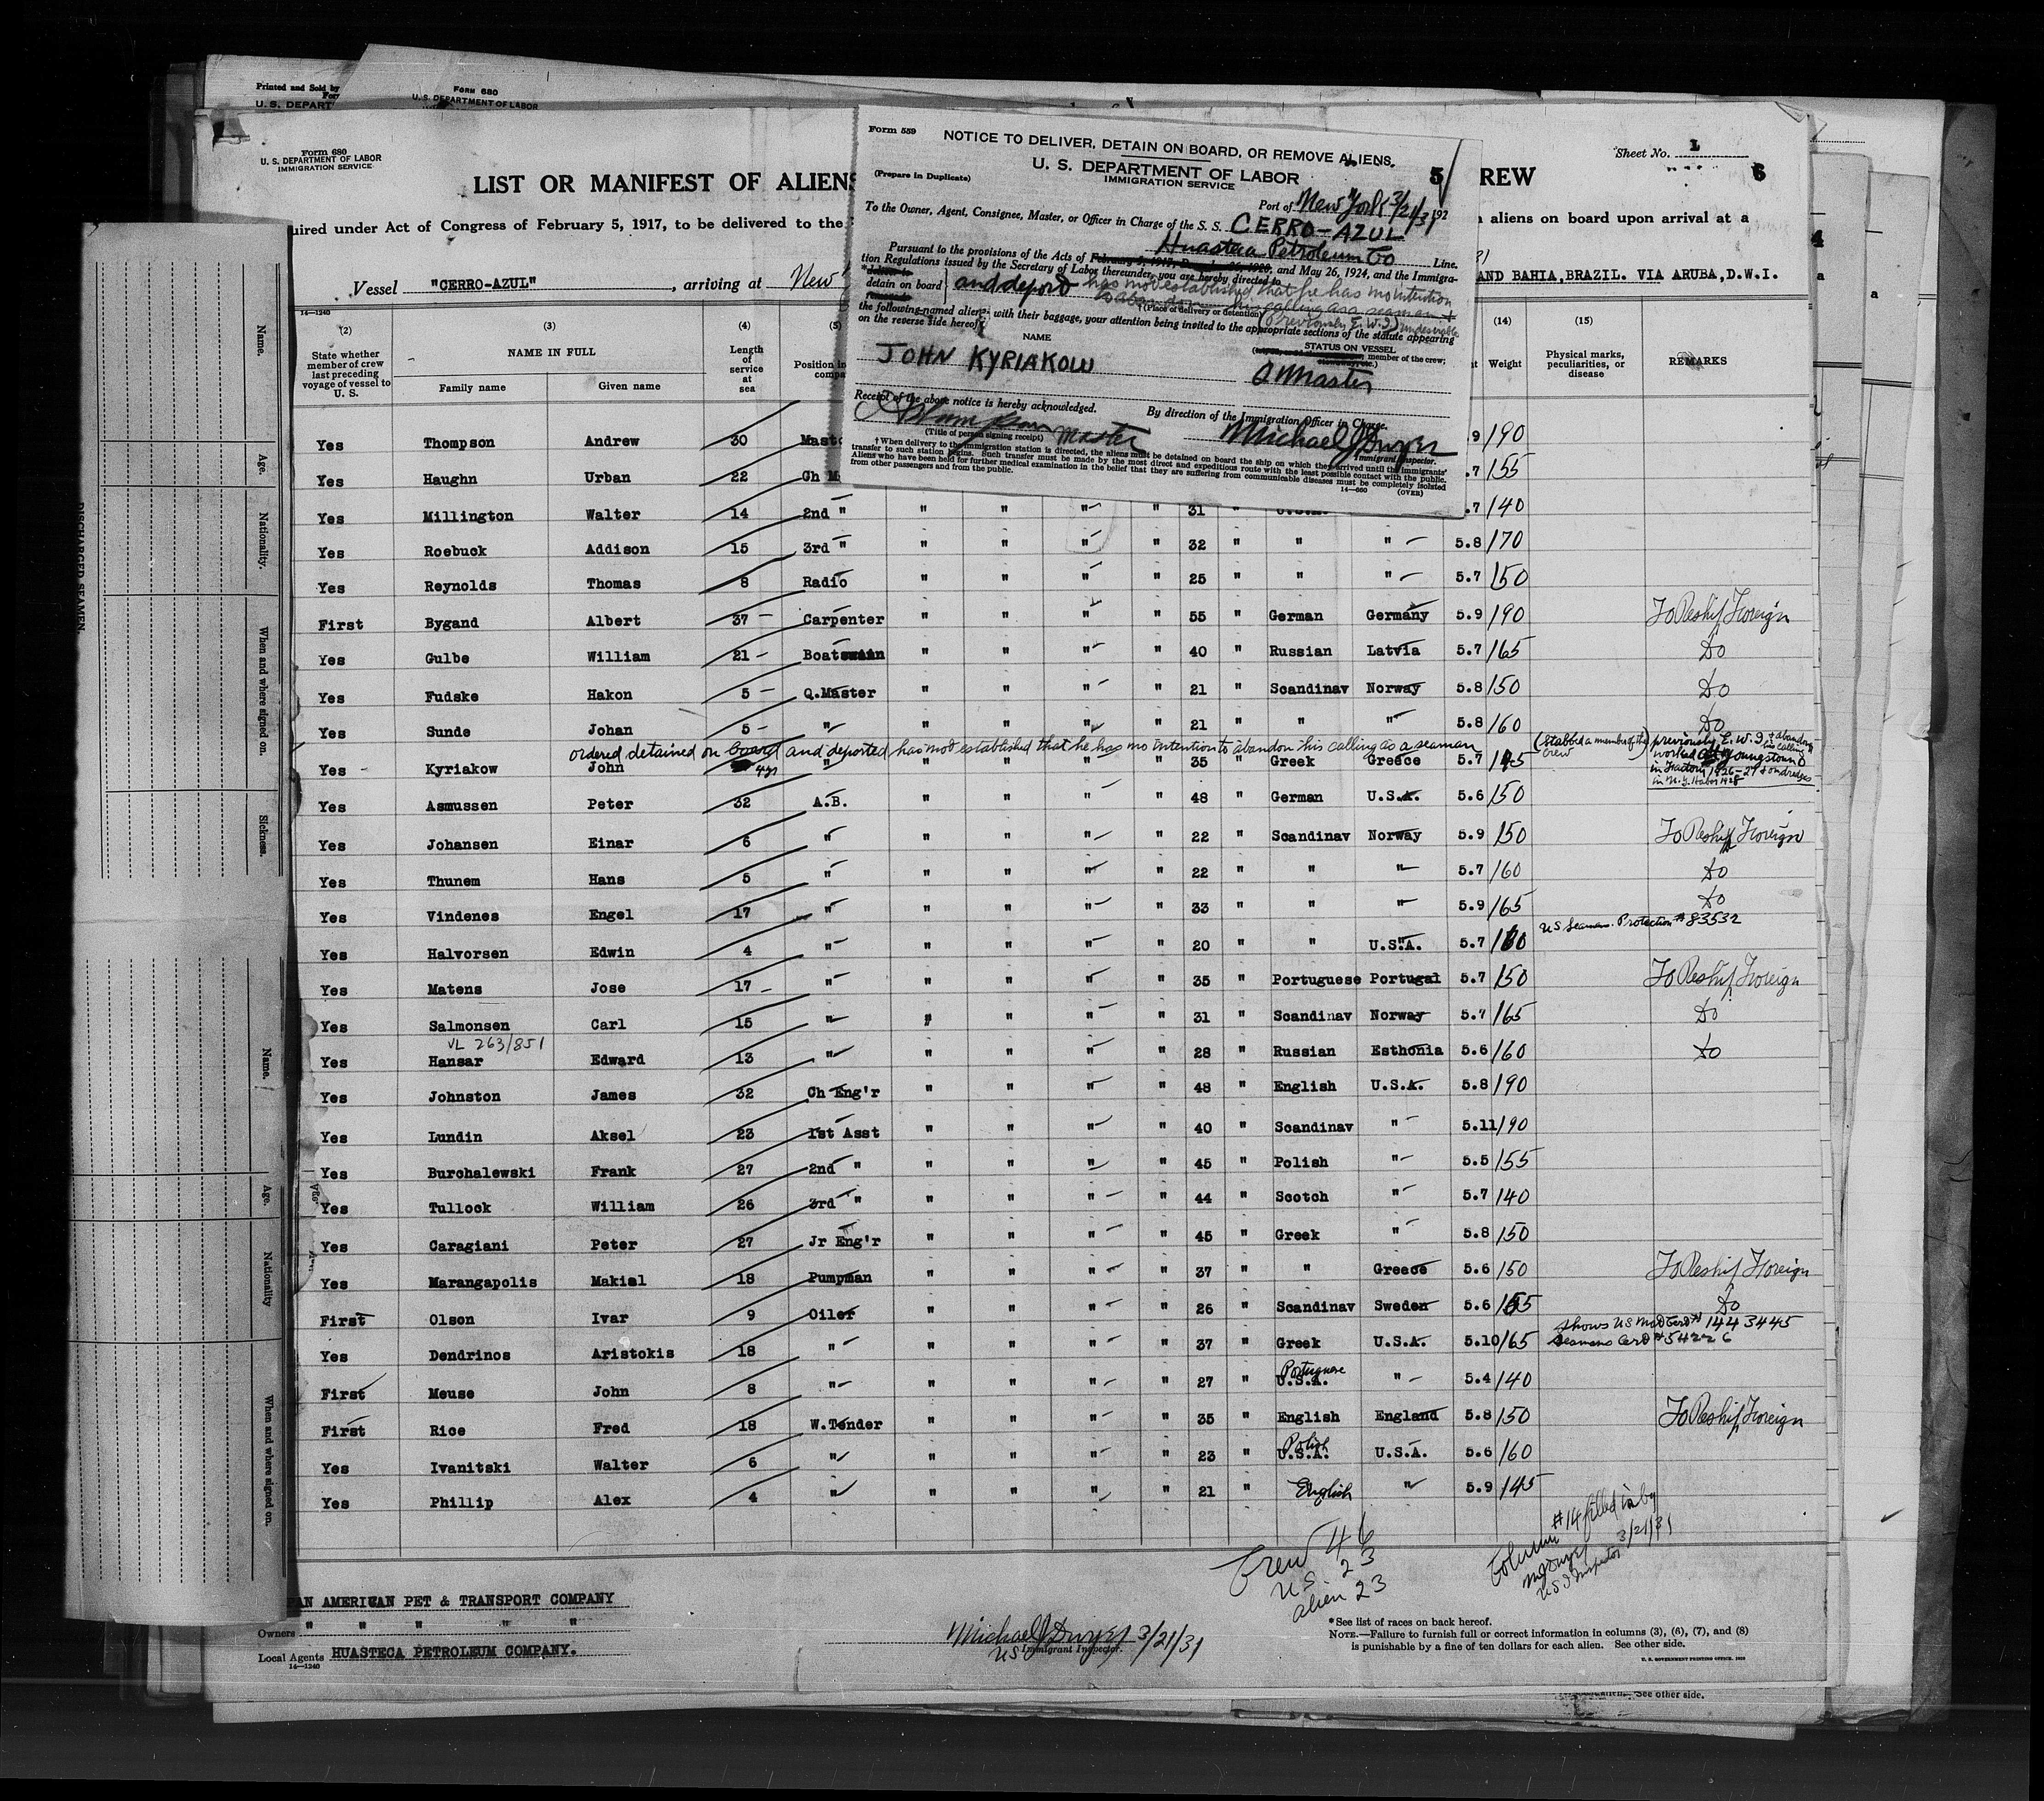 Printed and Sold by
U. S. DEPART
FORM 680
U. S. DEPARTMENT OF LABOR
Form 680
U. S. DEPARTMENT OF LABOR
IMMIGRATION SERVICE
Sheet No. 1
LIST OR MANIFEST OF ALIENS
5
REW
6
uired under Act of Congress of February 5, 1917, to be delivered to the
aliens on board upon arrival at a
Vessel "CERRO-AZUL", arriving at New
AND BAHIA, BRAZIL. VIA ARUBA, D.W.I.
Form 559
NOTICE TO DELIVER, DETAIN ON BOARD, OR REMOVE ALIENS.
(Prepare in Duplicate)
U. S. DEPARTMENT OF LABOR
IMMIGRATION SERVICE
Port of New York 3/21/31 192
To the Owner, Agent, Consignee, Master, or Officer in Charge of the S. S. CERRO-AZUL
Huasteca Petroleum Co Line.
Pursuant to the provisions of the Acts of February 5, 1917, and May 26, 1924, and the Immigra-
tion Regulations issued by the Secretary of Labor thereunder, you are hereby directed to
*deliver to
detain on board and deport has not established that he has no intention
to abandon his calling as a seaman +
†(Place of delivery or detention) (Previously E.W.I) undesirable
the following-named aliens, with their baggage, your attention being invited to the appropriate sections of the statute appearing
on the reverse side hereof:
NAME
STATUS ON VESSEL
member of the crew;
JOHN KYRIAKOW
Q Master
Receipt of the above notice is hereby acknowledged.
By direction of the Immigration Officer in Charge.
A Thompson Master
(Title of person signing receipt)
Michael J Dwyer
Immigrant Inspector.
†When delivery to the immigration station is directed, the aliens must be detained on board the ship on which they arrived until the immigrants'
transfer to such station begins. Such transfer must be made by the most direct and expeditious route with the least possible contact with the public.
Aliens who have been held for further medical examination in the belief that they are suffering from communicable diseases must be completely isolated
from other passengers and from the public.
14—660 (OVER)
14—1240
(2) (3) (4) (5) (14) (15)
State whether member of crew last preceding voyage of vessel to U. S.
NAME IN FULL
Family name Given name
Length of service at sea
Position in
Weight
Physical marks, peculiarities, or disease
REMARKS
Yes Thompson Andrew 30 Mast 9 190
Yes Haughn Urban 22 Ch M .7 155
Yes Millington Walter 14 2nd " " " " " 31 " .7 140
Yes Roebuck Addison 15 3rd " " " " " 32 " " " 5.8 170
Yes Reynolds Thomas 8 Radio " " " " 25 " " " 5.7 150
First Bygand Albert 37 Carpenter " " " " 55 " German Germany 5.9 190 To Reship Foreign
Yes Gulbe William 21 Boatswain " " " " 40 " Russian Latvia 5.7 165 Do
Yes Fudske Hakon 5 Q.Master " " " " 21 " Scandinav Norway 5.8 150 Do
Yes Sunde Johan 5 " " " " " 21 " " " 5.8 160 Do
ordered detained on board and deported has not established that he has no intention to abandon his calling as a seaman (Stabbed a member of the crew) previously E.W.I + abandon his calling
Yes Kyriakow John 4 yr " " " " " 35 " Greek Greece 5.7 145 worked at Youngstown O
in Factory 1926-27 + on dredges
in N.Y. Harbor 1928
Yes Asmussen Peter 32 A.B. " " " " 48 " German U.S.A. 5.6 150
Yes Johansen Einar 6 " " " " " 22 " Scandinav Norway 5.9 150 To Reship Foreign
Yes Thunem Hans 5 " " " " " 22 " " " 5.7 160 Do
Yes Vindenes Engel 17 " " " " " 33 " " " 5.9 165 Do
US Seamans. Protection # 83532
Yes Halvorsen Edwin 4 " " " " " 20 " " U.S.A. 5.7 160
Yes Matens Jose 17 " " " " " 35 " Portuguese Portugal 5.7 150 To Reship Foreign
Yes Salmonsen Carl 15 " " " " " 31 " Scandinav Norway 5.7 165 Do
VL 263/851
Yes Hansar Edward 13 " " " " " 28 " Russian Esthonia 5.6 160 Do
Yes Johnston James 32 Ch Eng'r " " " " 48 " English U.S.A. 5.8 190
Yes Lundin Aksel 23 1st Asst " " " " 40 " Scandinav " 5.11 190
Yes Burchalewski Frank 27 2nd " " " " " 45 " Polish " 5.5 155
Yes Tullock William 26 3rd " " " " " 44 " Scotch " 5.7 140
Yes Caragiani Peter 27 Jr Eng'r " " " " 45 " Greek " 5.8 150
Yes Marangapolis Makial 18 Pumpman " " " " 37 " " Greece 5.6 150 To Reship Foreign
First Olson Ivar 9 Oiler " " " " 26 " Scandinav Sweden 5.6 155 Do
shows US Mod Cert # 1443445
Yes Dendrinos Aristokis 18 " " " " " 37 " Greek U.S.A. 5.10 165 Seamans Cert # 54226
Portuguese
First Meuse John 8 " " " " " 27 " U.S.A. " 5.4 140
First Rice Fred 18 W.Tender " " " " 35 " English England 5.8 150 To Reship Foreign
Polish
Yes Ivanitski Walter 6 " " " " " 23 " U.S.A. U.S.A. 5.6 160
Yes Phillip Alex 4 " " " " " 21 " English " 5.9 145
Crew 46
US 23
alien 23
Column #14 filled in by
MJ Dwyer
US I Inspector 3/21/31
PAN AMERICAN PET & TRANSPORT COMPANY
Owners " " " " "
Local Agents HUASTECA PETROLEUM COMPANY.
14—1240
Michael J Dwyer 3/21/31
US Immigrant Inspector.
*See list of races on back hereof.
NOTE.—Failure to furnish full or correct information in columns (3), (6), (7), and (8)
is punishable by a fine of ten dollars for each alien. See other side.
U. S. GOVERNMENT PRINTING OFFICE
See other side.
DISCHARGED SEAMEN.
Name.
Age.
Nationality.
When and where signed on.
Sickness.
Name.
Age.
Nationality
When and where signed on.